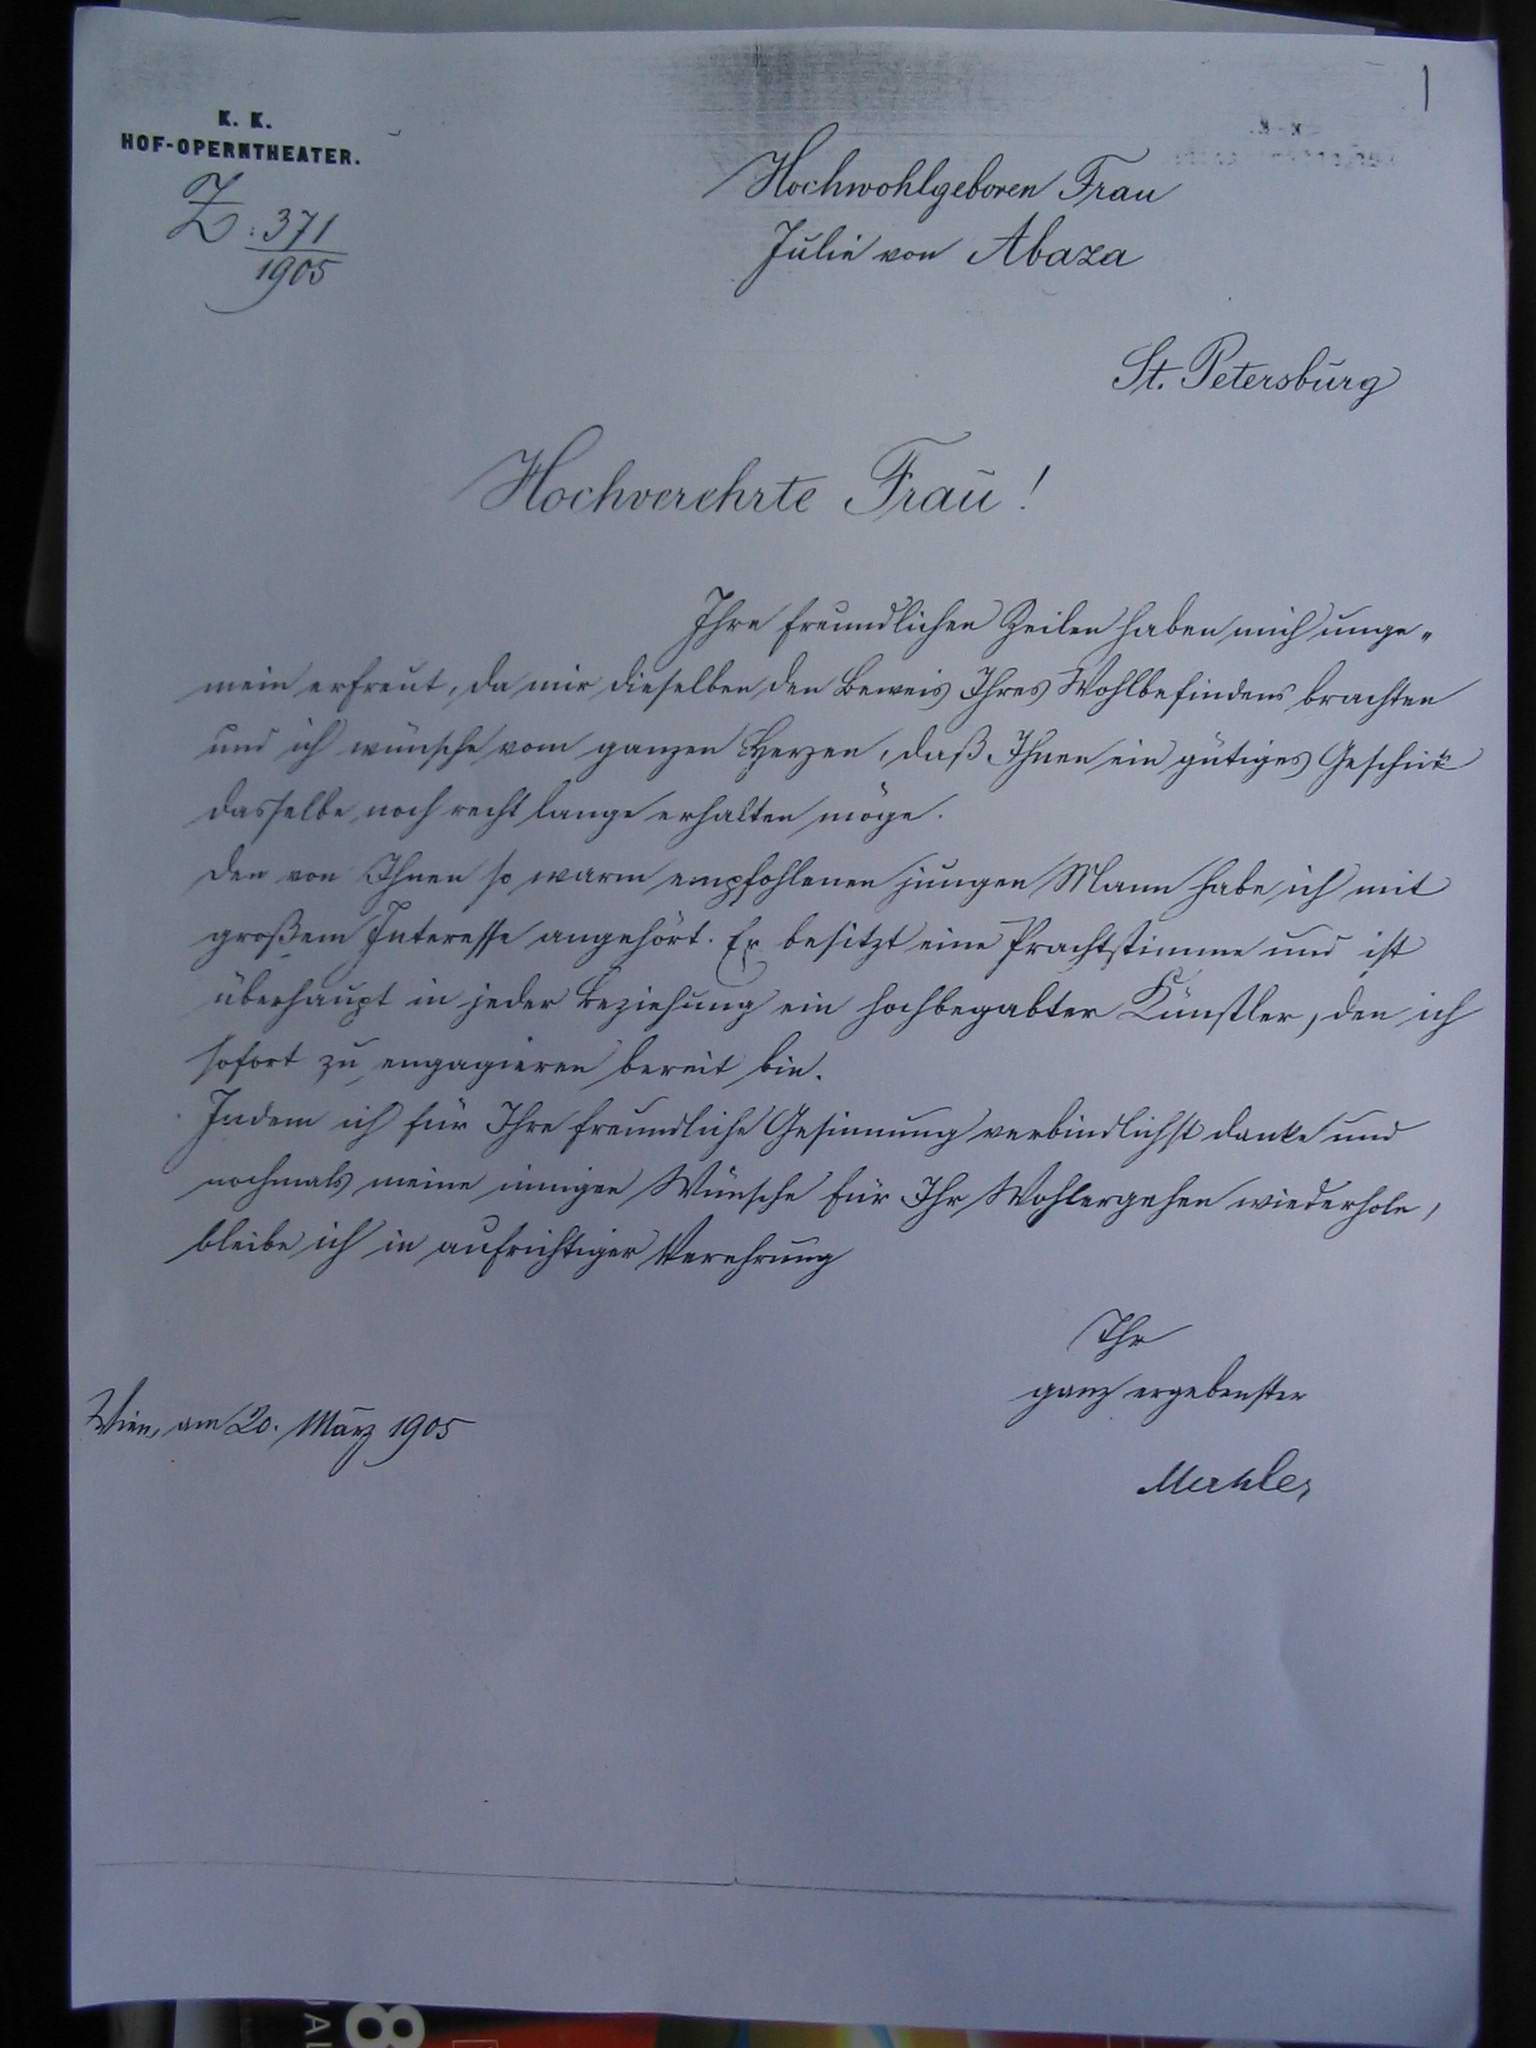 K. K.
HOF-OPERNTHEATER.
Z: 371
1905
Hochwohlgeboren Frau
Julie von Abaza
St. Petersburg
Hochverehrte Frau!
Ihre freundlichen Zeilen haben mich unge-
mein erfreut, da mir dieselben den Beweis Ihres Wohlbefindens brachten
und ich wünsche vom ganzen Herzen, daß Ihnen ein gütiges Geschick
dasselbe noch recht lange erhalten möge.
Den von Ihnen so warm empfohlenen jungen Mann habe ich mit
großem Interesse angehört. Er besitzt eine Prachtstimme und ist
überhaupt in jeder Beziehung ein hochbegabter Künstler, den ich
sofort zu engagieren bereit bin.
Indem ich für Ihre freundliche Gesinnung verbindlichst danke und
nochmals meine innigen Wünsche für Ihr Wohlergehen wiederhole,
bleibe ich in aufrichtiger Verehrung
Ihr
ganz ergebenster
Wien, am 20. März 1905
Mahler
8